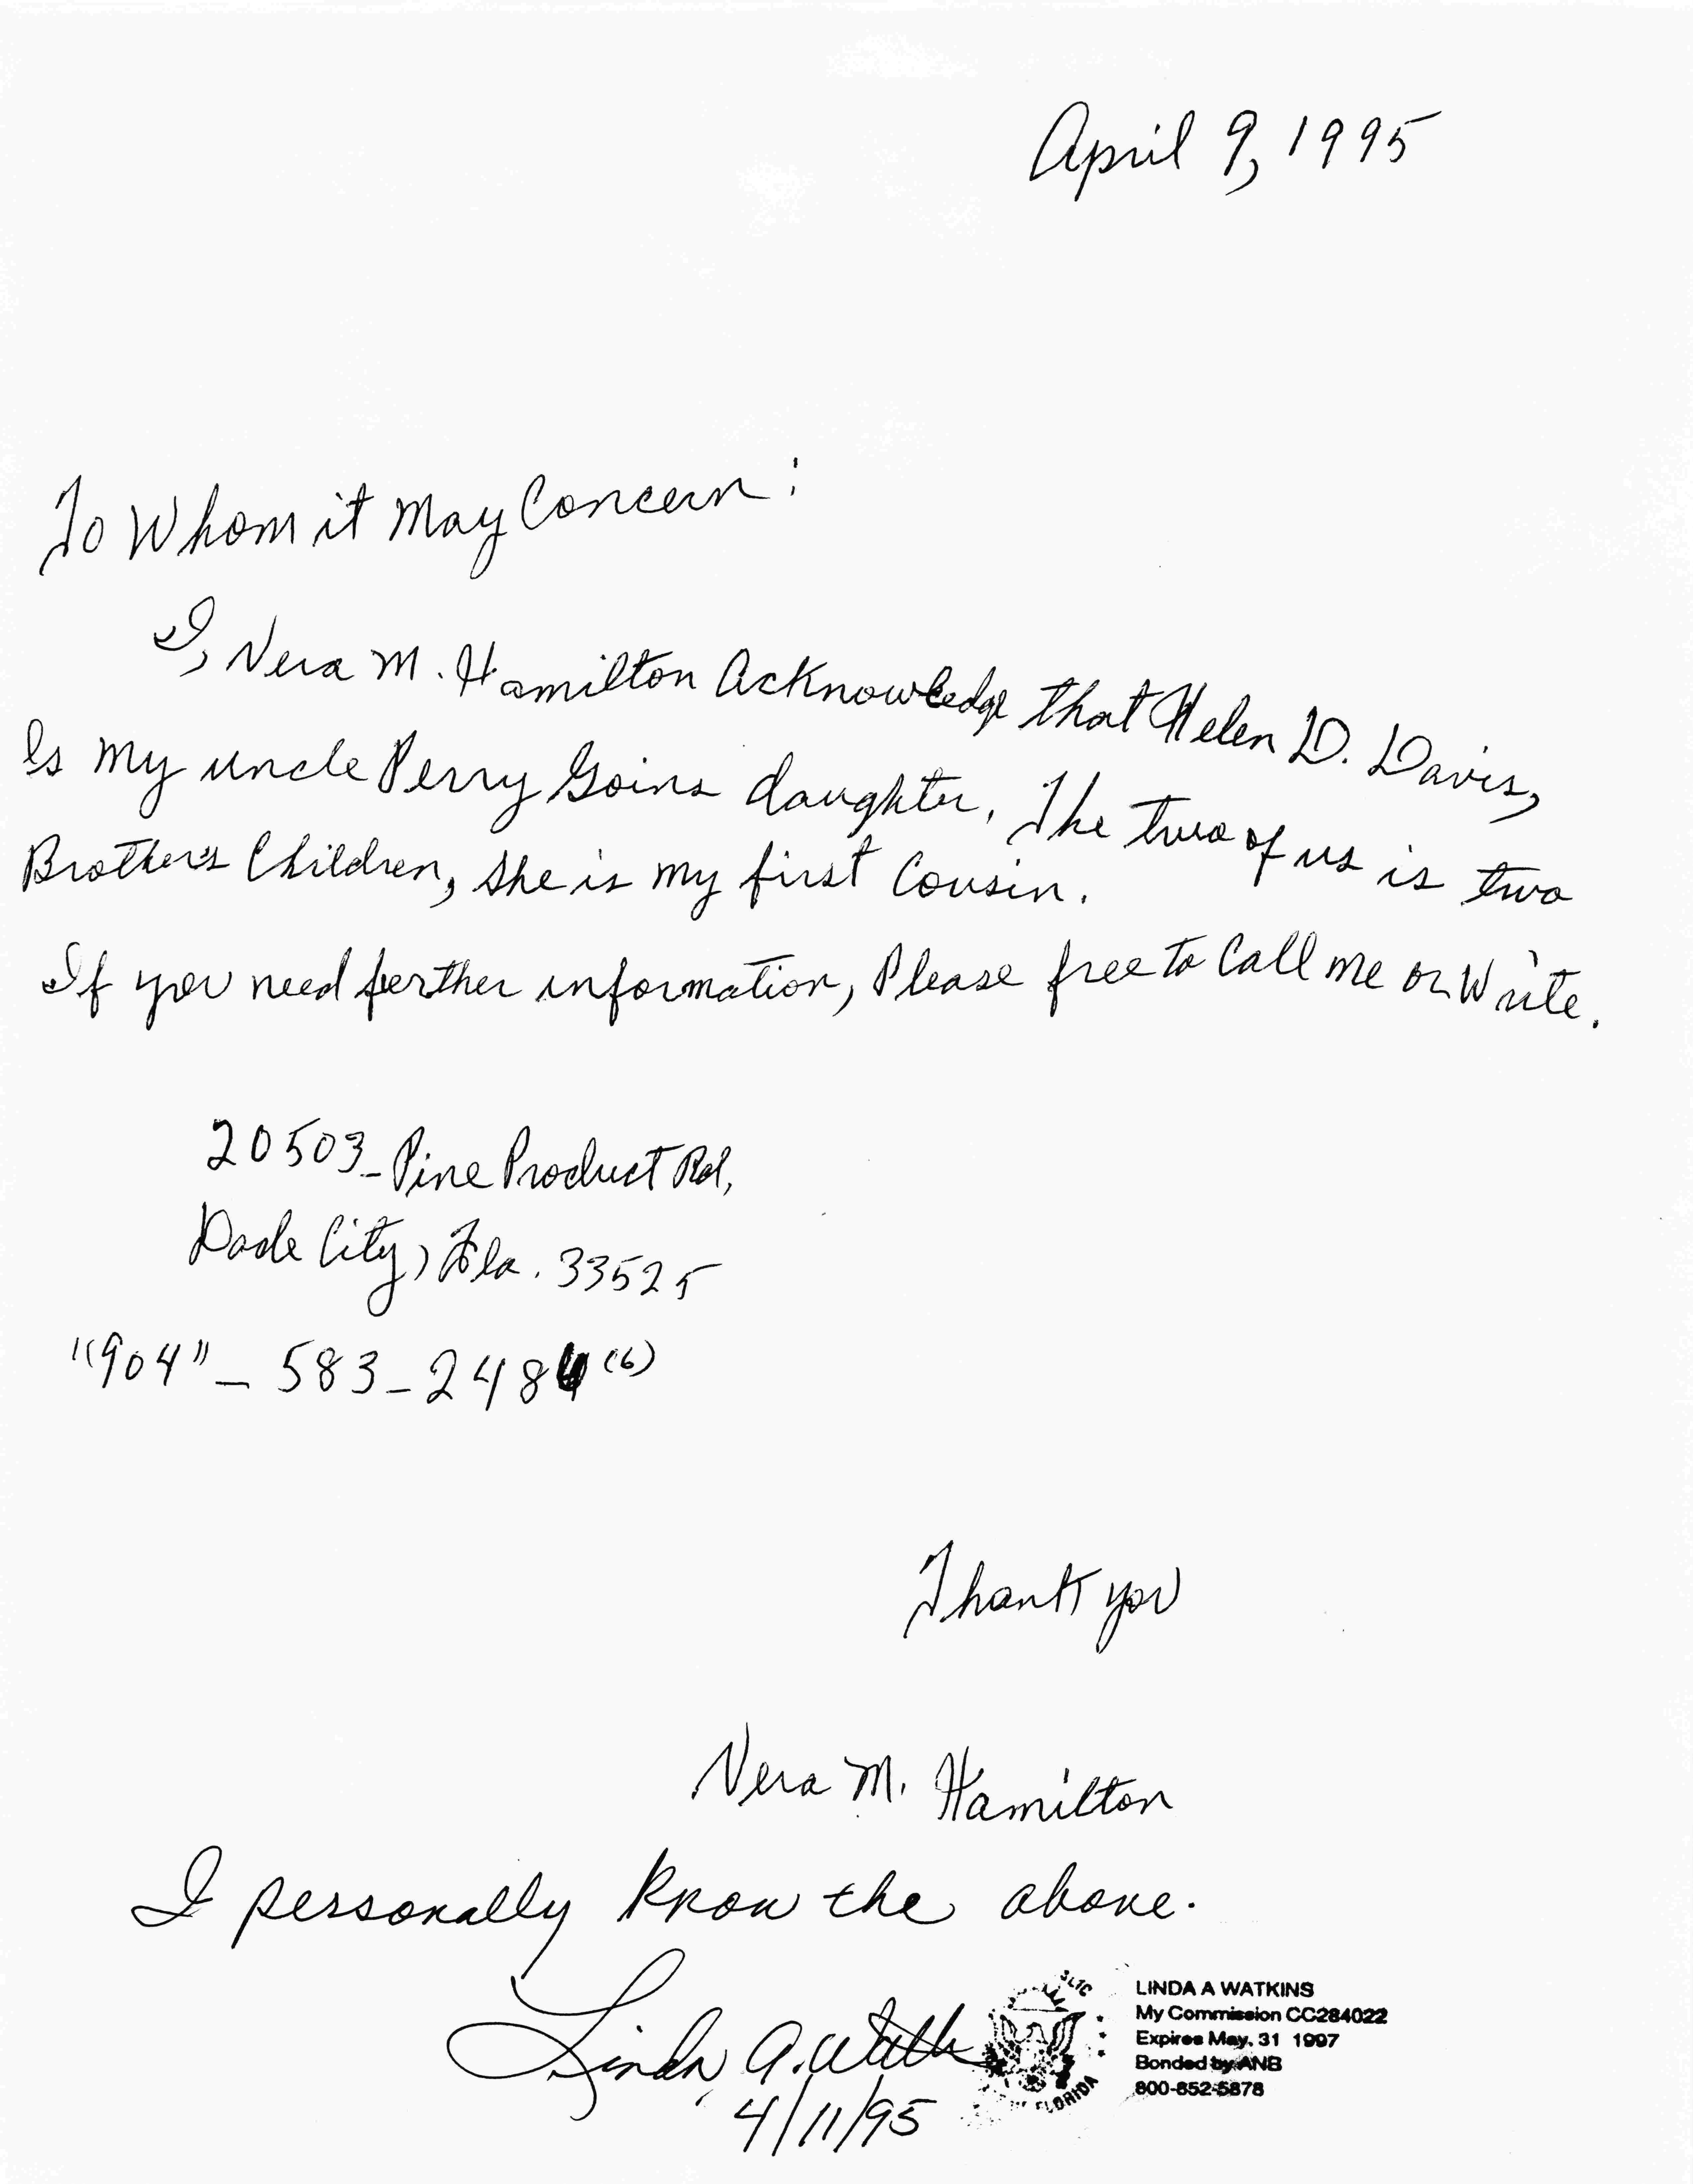 April 9, 1995
To Whom it May Concern:
I, Vera M. Hamilton Acknowledge that Helen D. Davis,
Is my uncle Perry Goins daughter. The two of us is two
Brother's Children, she is my first Cousin.
If you need ferther information, Please free to Call me or Write.
20503 - Pine Product Rd,
Dade City, Fla. 33525
"904" - 583 - 2486 (6)
Thank you
Vera M. Hamilton
I personally know the above.
Linda A. Watkins
4/11/95
LINDA A WATKINS
My Commission CC284022
Expires May. 31 1997
Bonded by ANB
800-852-5878
FLORIDA